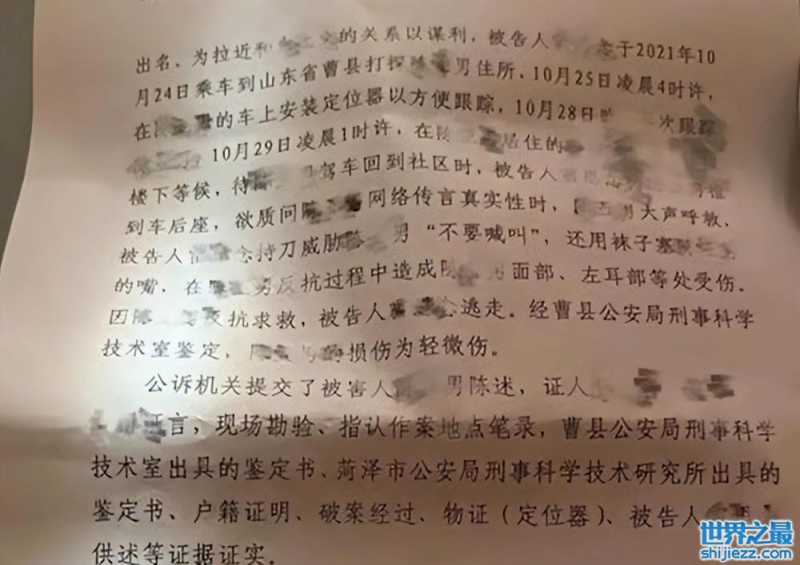 出名，为拉近和的关系以谋利，被告人于2021年10
月24日乘车到山东省曹县打探男住所，10月25日凌晨4时许，
在的车上安装定位器以方便跟踪，10月28日次跟踪
10月29日凌晨1时许，在居住的
楼下等候，待驾车回到社区时，被告人
到车后座，欲质问网络传言真实性时，大声呼救，
被告人持刀威胁男“不要喊叫”，还用袜子塞
的嘴，在男反抗过程中造成男面部、左耳部等处受伤。
因反抗求救，被告人逃走。经曹县公安局刑事科学
技术室鉴定，的损伤为轻微伤。
公诉机关提交了被害人男陈述，证人
证言，现场勘验、指认作案地点笔录，曹县公安局刑事科学
技术室出具的鉴定书、菏泽市公安局刑事科学技术研究所出具的
鉴定书、户籍证明、破案经过、物证（定位器）、被告人
供述等证据证实。
世界之最
shijiezz.com